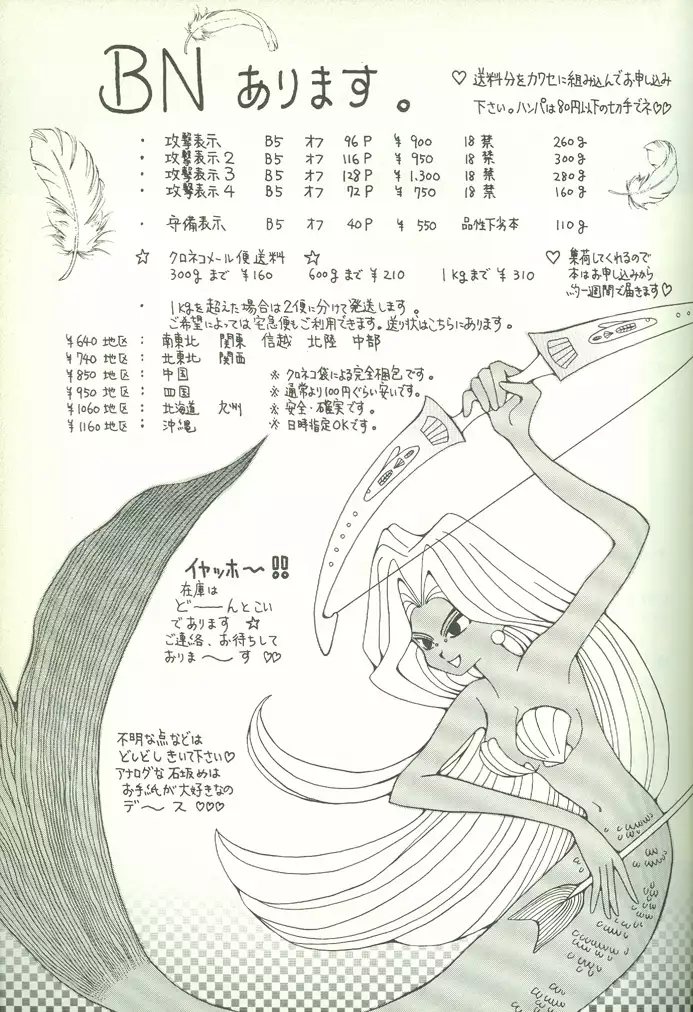 BN あります。
♡ 送料分をカワセに組み込んでお申し込み
下さい。ハンパは80円以下の切手でネ♡♡
・ 攻撃表示 B5 オフ 96P ¥900 18禁 260g
・ 攻撃表示2 B5 オフ 116P ¥950 18禁 300g
・ 攻撃表示3 B5 オフ 128P ¥1.300 18禁 280g
・ 攻撃表示4 B5 オフ 72P ¥750 18禁 160g
・ 守備表示 B5 オフ 40P ¥550 品性下劣本 110g
☆ クロネコメール便送料 ☆
300gまで ¥160 600gまで ¥210 1kgまで ¥310
♡ 集荷してくれるので
本はお申し込みから
約一週間で届きます♡
・ 1kgを超えた場合は2便に分けて発送します。
ご希望によっては宅急便もご利用できます。送り状はこちらにあります。
¥640地区: 南東北 関東 信越 北陸 中部
¥740地区: 北東北 関西
¥850地区: 中国 ※クロネコ袋による完全梱包です。
¥950地区: 四国 ※通常より100円ぐらい安いです。
¥1060地区: 北海道 九州 ※安全・確実です。
¥1160地区: 沖縄 ※日時指定OKです。
イヤッホ〜!!
在庫は
ど——んとこい
であります ☆
ご連絡、お待ちして
おりま〜す ♡♡
不明な点などは
どしどしきいて下さい♡
アナログな石坂めは
お手紙が大好きなの
デ〜ス ♡♡♡